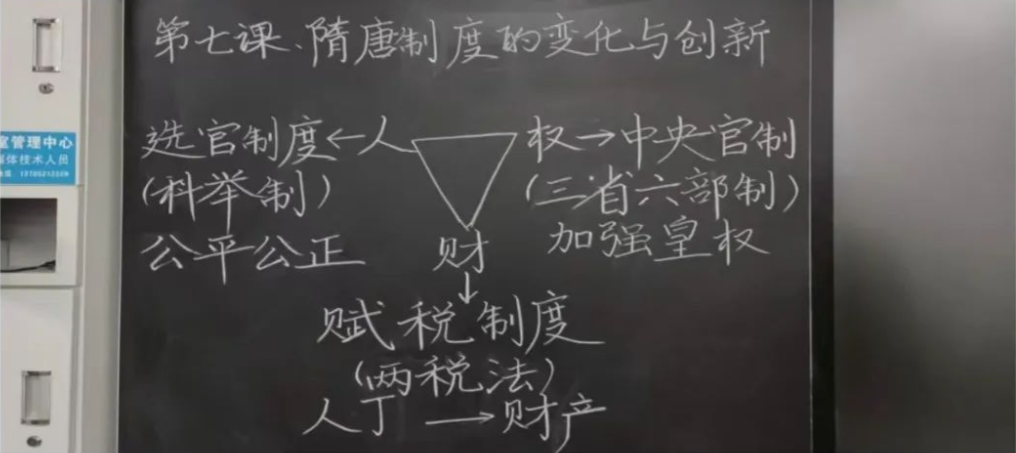 第七课、隋唐制度的变化与创新
选官制度←人
(科举制)
公平公正
权→中央官制
(三省六部制)
加强皇权
财
↓
赋税制度
(两税法)
人丁→财产
室管理中心
媒体技术人员